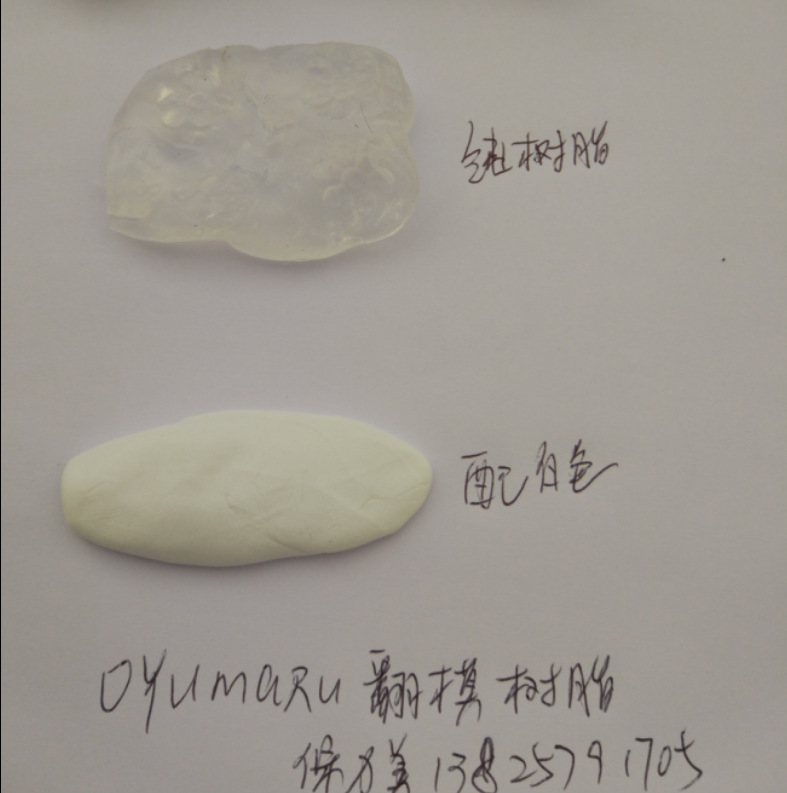 纯树脂
配白色
OYUMARU 翻模树脂
保力美 13825791705